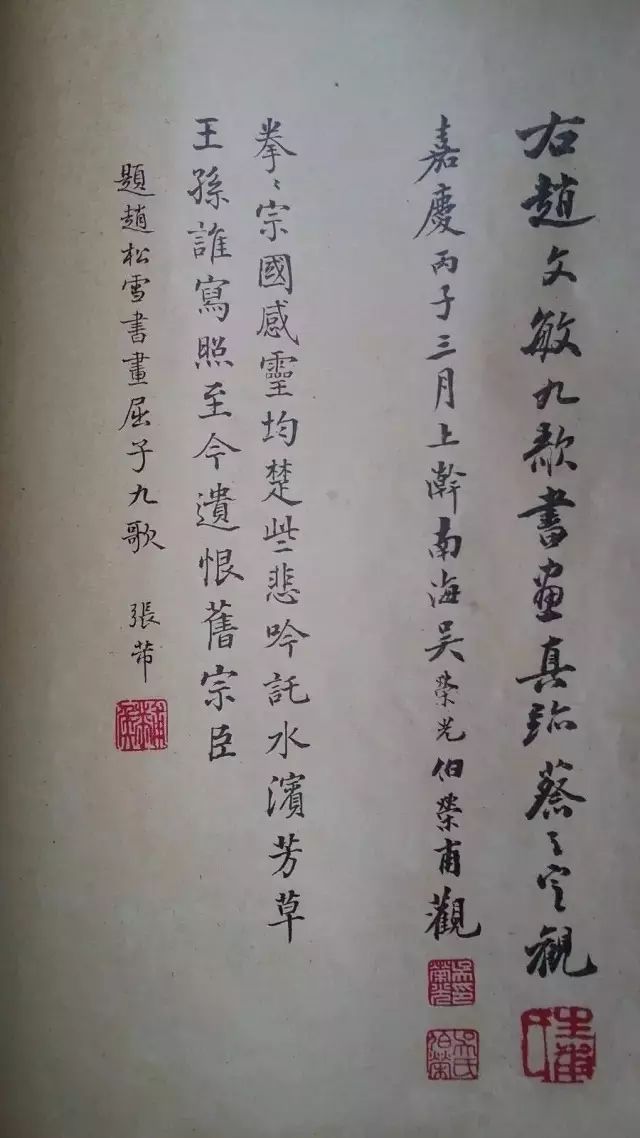 右趙文敏九歌書畫真跡蔡之定觀
嘉慶丙子三月上澣南海吳榮光伯榮甫觀
拳〻宗國感靈均楚些悲吟託水濱芳草
王孫誰寫照至今遺恨舊宗臣
題趙松雪書畫屈子九歌 張芾
吳榮光印
吳氏伯榮